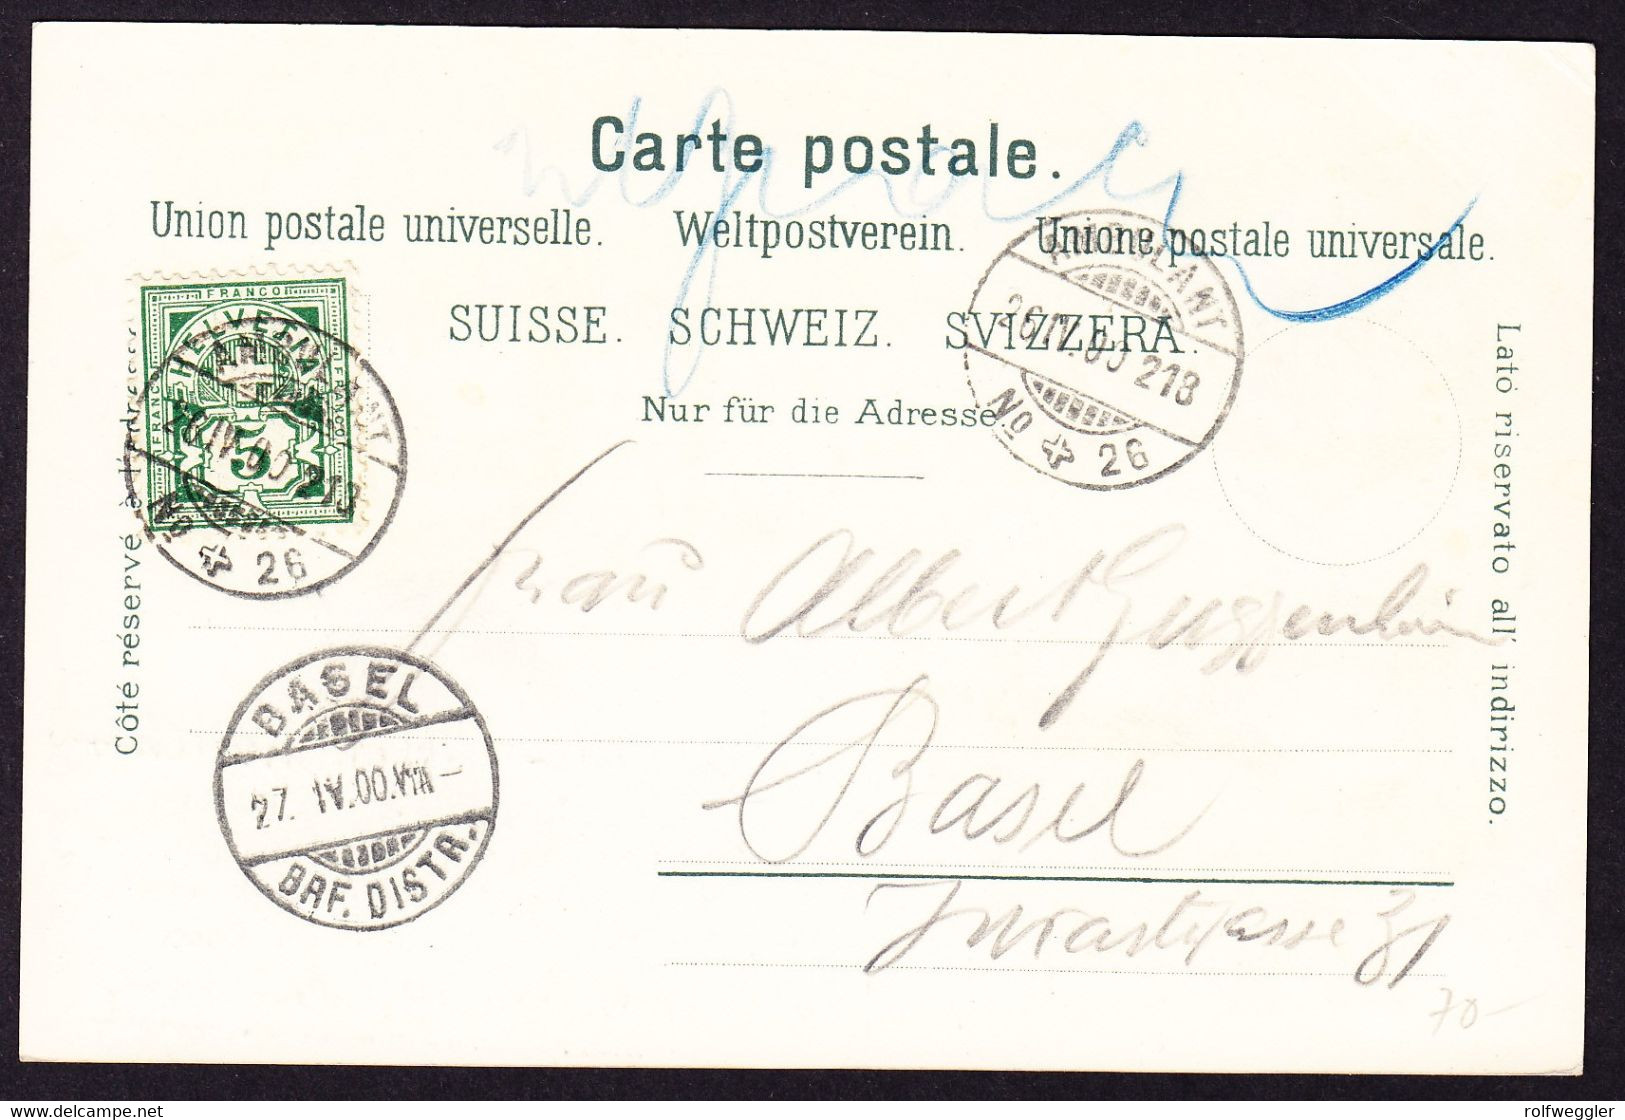 Carte postale.
Union postale universelle. Weltpostverein. Unione postale universale.
SUISSE. SCHWEIZ. SVIZZERA.
Nur für die Adresse.
FRANCO
HELVETIA
FRANCO
FRANCO
5
AMBULANT
26.IV.00 213
No 26
AMBULANT
26.IV.00 213
No 26
Côté réservé à l'adresse
Lato riservato all' indirizzo.
BASEL
27. IV.00.
BRF. DISTR.
Frau Albert Guggenheim
Basel
Jurastrasse 31
70-
www.delcampe.net
rolfweggler